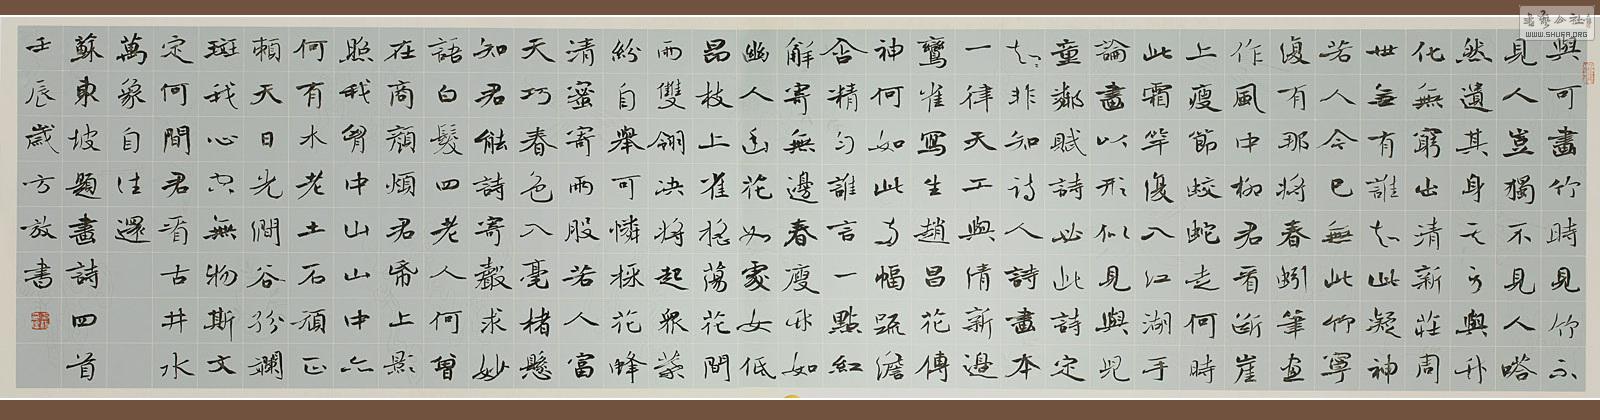 與可畫竹時見竹不
見人豈獨不見人嗒
然遺其身其身與竹
化無窮出清新莊周
世無有誰知此凝神
若人今已無此竹寧
復有那將春蚓筆畫
作風中柳君看斷崖
上瘦節蛟蛇走何時
此霜竿復入江湖手
論畫以形似見與兒
童鄰賦詩必此詩定
知非知詩人詩畫本
一律天工與清新邊
鸞雀寫生趙昌花傳
神何如此兩幅疏澹
含精勻誰言一點紅
解寄無邊春瘦竹如
幽人幽花如處女低
昂枝上雀搖蕩花間
雨雙翎決將起眾葉
紛自舉可憐採花蜂
清蜜寄兩股若人富
天巧春色入毫楮懸
知君能詩寄聲求妙
語白髮四老人何曾
在商顏煩君紙上影
照我胸中山山中亦
何有木老土石頑正
賴天日光澗谷紛斕
斑我心空無物斯文
定何間君看古井水
萬象自往還
蘇東坡題畫詩四首
壬辰歲方放書
WWW.SHUFA.ORG